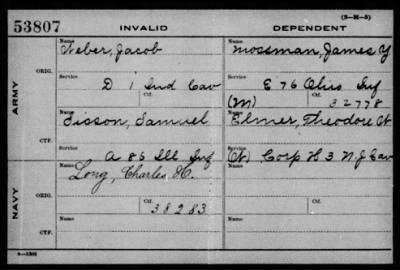 (3-H-5)
53807 INVALID DEPENDENT
Name Name
Weber, Jacob Mossman, James Y
ORIG. Service Service
D 1 Ind Cav E 76 Ohio Inf
Ctf. Ctf.
ARMY
(M) 32778
Name Name
Sisson, Samuel Elmer, Theodore A
CTF. Service Service
A 85 Ill Inf (A) Corp H 3 N.J. Cav
Name Name
Long, Charles H.
ORIG.
Ctf. Ctf.
NAVY
38283
Name Name
CTF.